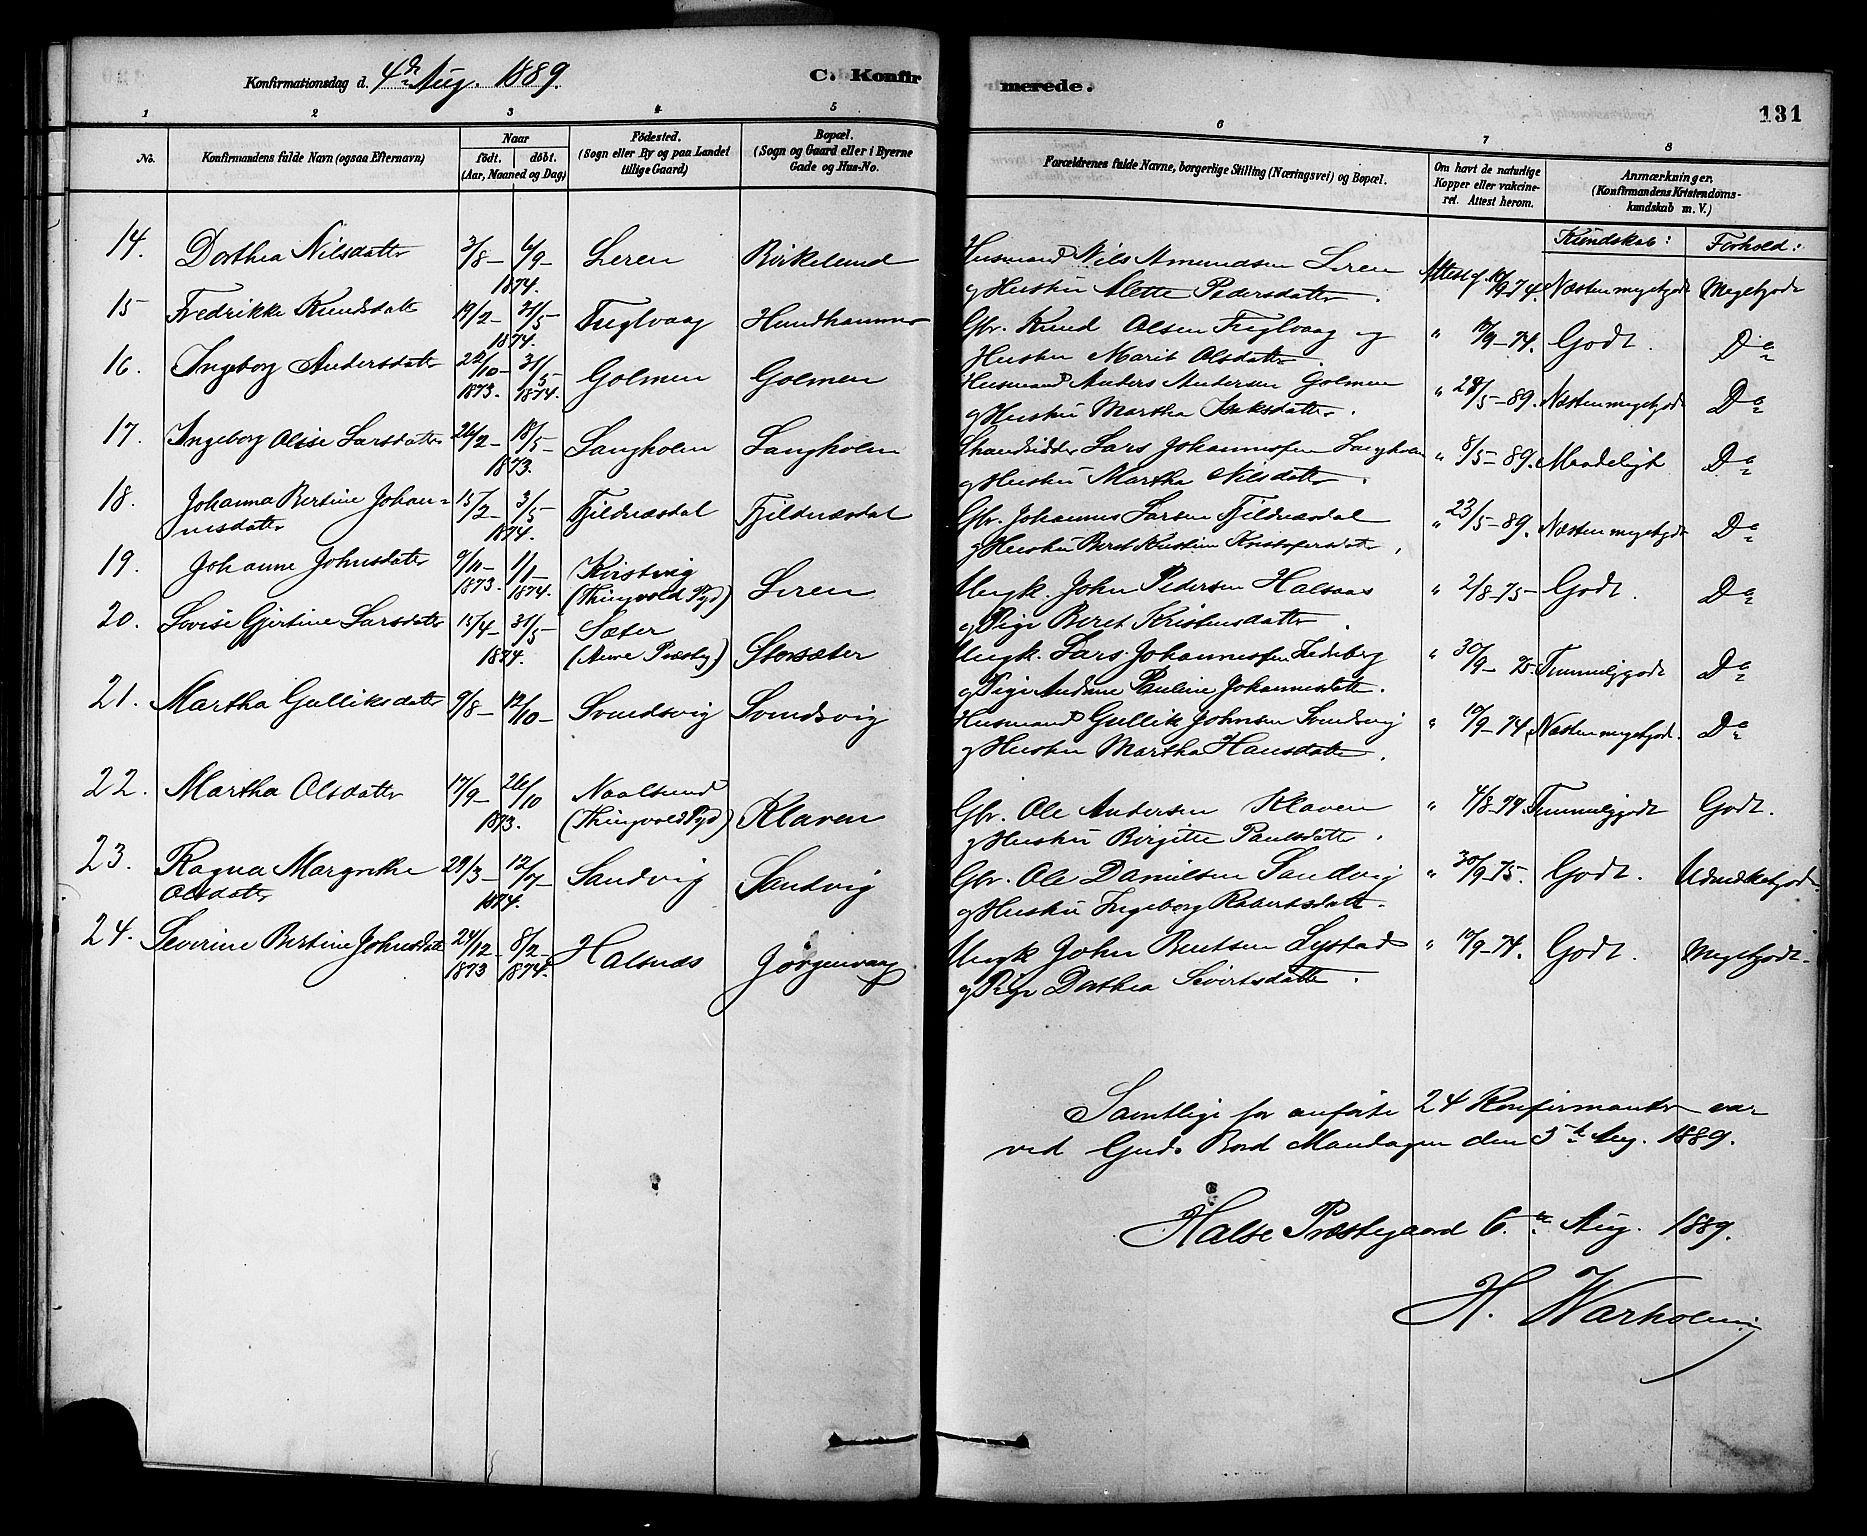 Konfirmationsdag d. 4de Aug. 1889.
C. Konfirmerede.
131
1 2 3 4 5 6 7 8
No.
Konfirmandens fulde Navn (ogsaa Efternavn)
Naar
født. døbt.
(Aar, Maaned og Dag)
Fødested.
(Sogn eller By og paa Landet
tillige Gaard)
Bopæl.
(Sogn og Gaard eller i Byerne
Gade og Hus-No.
Forældrenes fulde Navne, borgerlige Stilling (Næringsvei) og Bopæl.
Om havt de naturlige
Kopper eller vakcine-
ret. Attest herom.
Anmærkninger.
(Konfirmandens Kristendoms-
kundskab m. V.)
Kundskab: Forhold:
14. Dorthea Nilsdatter 3/8 – 6/9 – 1874. Leren Birkelund
Husmand Nils Amundsen Leren
og Hustru Alette Pedersdatter. Attest af 10/9 74. Næsten megetgodt Megetgodt
15 Fredrikke Knudsdatter 19/2 – 31/5 – 1874. Fuglvaag Hundhammer
Gbr. Knud Olsen Fuglvaag og
Hustru Marit Olsdatter. " 10/9 – 74. Godt. Do
16. Ingeborg Andersdatter 22/10 – 1873. 31/5 – 1874. Golmen Golmen
Husmand Anders Andersen Golmen
og Hustru Martha Isaksdatter. " 28/5 – 89. Næsten megetgodt Do
17. Ingeborg Olise Larsdatter 26/2 – 18/5 – 1873. Langholen Langholen
Strandsidder Lars Johannessen Langholen
og Hustru Martha Nilsdatter. " 8/5 – 89. Maadeligt Do
18. Johanna Bertine Johan-
nesdatter 15/2 – 3/5 – 1874. Fjeldnæsdal Fjeldnæsdal
Gbr. Johannes Larsen Fjeldnæsdal
og Hustru Beret Kristine Kristofersdatter. " 23/5 – 89. Næsten megetgodt Do
19. Johanne Johnsdatter 9/11 – 1873. 1/1 – 1874. Kirstvig
(Thingvold Pgd) Leren
Ungk. John Pedersen Halsaas
og Pige Beret Kristensdatter. " 2/8 – 75 – Godt. Do
20. Lovise Gjertine Larsdatter 15/4 – 31/5 – 1874. Sæter
(Aure Præstg) Storsæter
Ungk. Lars Johannessen
og Pige Pauline Johannesdatter. " 30/9 – 75. Temmeliggodt Do
21. Martha Gulliksdatter 9/8 – 12/10 – Svendsvig Svendsvig
Husmand Gullik Johnsen Svendsvig
og Hustru Martha Hansdatter. " 10/9 – 74. Næsten megetgodt. Do
22. Martha Olsdatter 17/9 – 26/10 1873. Naalsund
(Thingvold Pgd) Klaven
Gbr. Ole Andersen Klaven
og Hustru Birgitte Paulsdatter. " 4/8 – 74. Temmeliggodt Godt.
23. Ragna Margrethe
Olsdatter 29/3 – 12/7 – 1874. Sandvig Sandvig
Gbr. Ole Danielsen Sandvig
og Hustru Ingeborg Robertsdatter. " 30/9 – 75. Godt. Udmærketgodt
24. Severine Bertine Johnsdatter 24/12 – 1873 8/2 – 1874. Halsnæs Jørgenvaag
Ungk John Berntsen Lystad
og Pige Dorthea Sivertsdatter. " 10/9 – 74. Godt. Megetgodt.
Samtlige for anførte 24 Konfirmanter var
ved Guds Bord Mandagen den 5te Aug. 1889.
Halse Præstegaard 6.te Aug. 1889.
H. Warholm